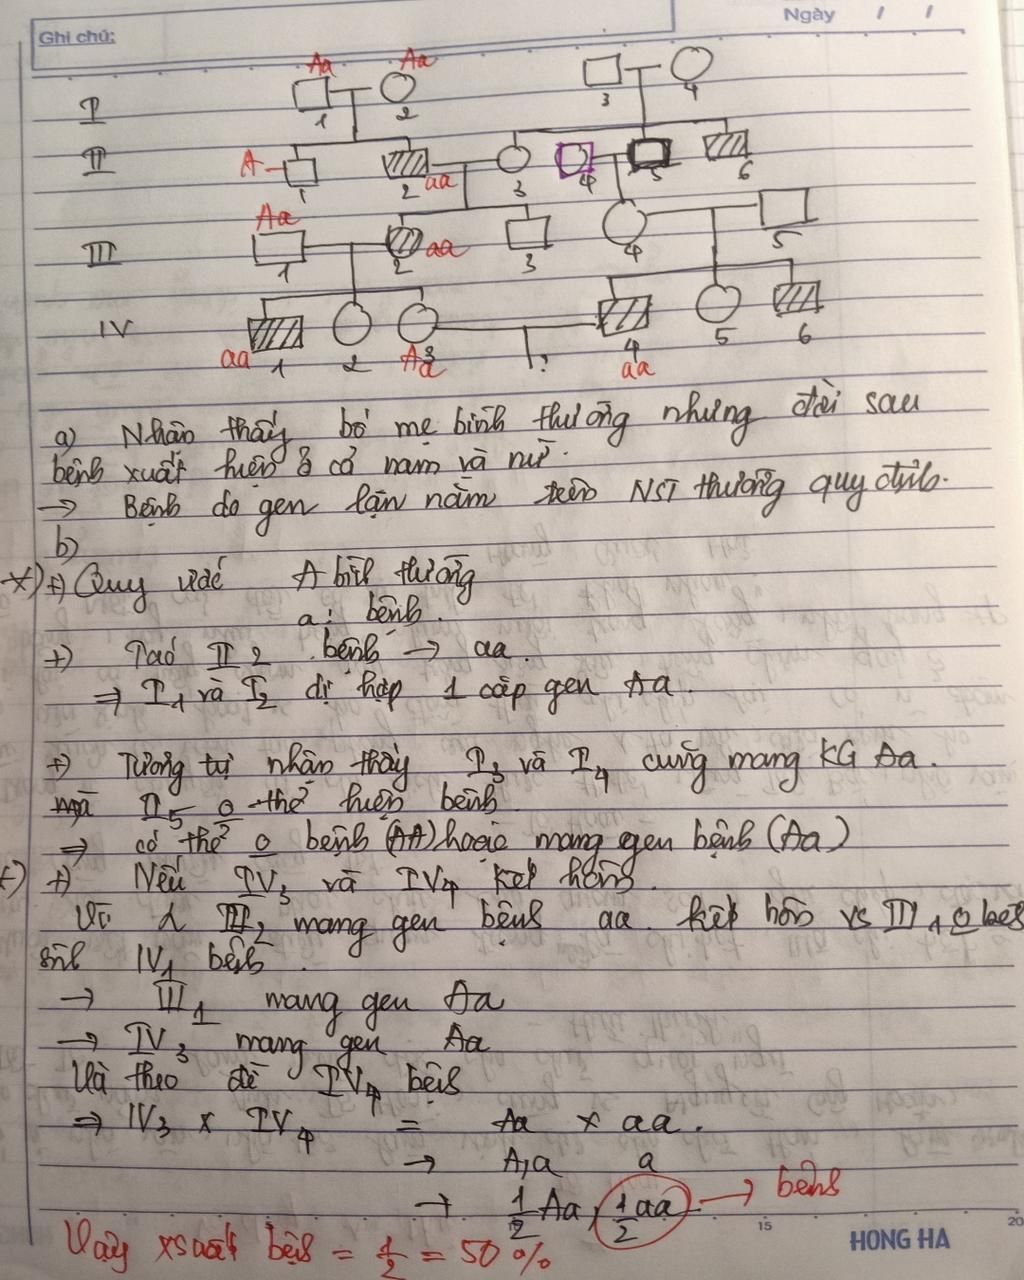 Ghi chú:
Ngày / /
Aa Aa
I
1 2 3 4
A-
II
1 2 aa 3 4 5 6
Aa
III
1 2 aa 3 4 5
IV
aa 1 2 3 Aa ? 4 aa 5 6
a) Nhận thấy bố mẹ bình thường nhưng đời sau
bệnh xuất hiện ở cả nam và nữ.
→ Bệnh do gen lặn nằm trên NST thường quy định.
b)
*) +) Quy ước A bình thường
a: bệnh.
+) Taó II 2 bệnh → aa.
⇒ I1 và I2 dị hợp 1 cặp gen Aa.
+) Tương tự nhận thấy I3 và I4 cũng mang KG Aa.
mà II5 o thể hiện bệnh
⇒ có thể o bệnh (AA) hoặc mang gen bệnh (Aa)
+) Nếu IV3 và IV4 kết hôn.
Vì III2 mang gen bệnh aa. kết hôn vs III1 o bệnh
sinh IV1 bệnh.
→ III1 mang gen Aa
→ IV3 mang gen Aa
Và theo đề IV4 bệnh
⇒ IV3 x IV4 = Aa x aa.
→ A,a a
→ 1/2 Aa, 1/2 aa → bệnh
Vậy xsuất bệnh = 1/2 = 50%
15
20
HONG HA